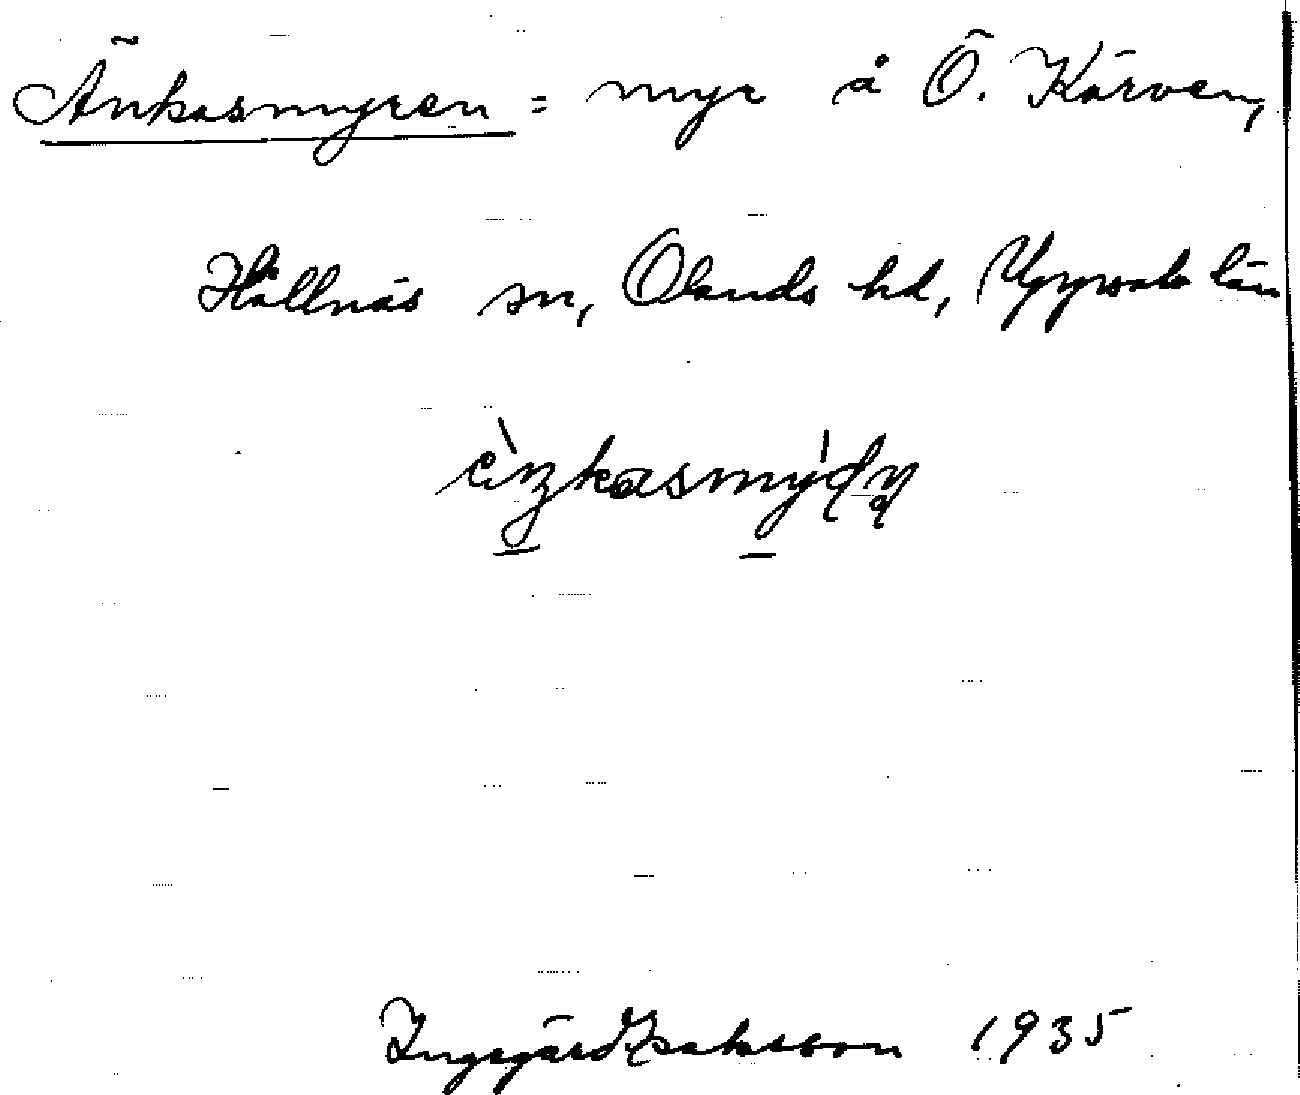 Änkasmyren = myr å Ö. Kärven,
Hållnäs sn, Olands hd, Uppsala län
Ingegärd Isaksson 1935